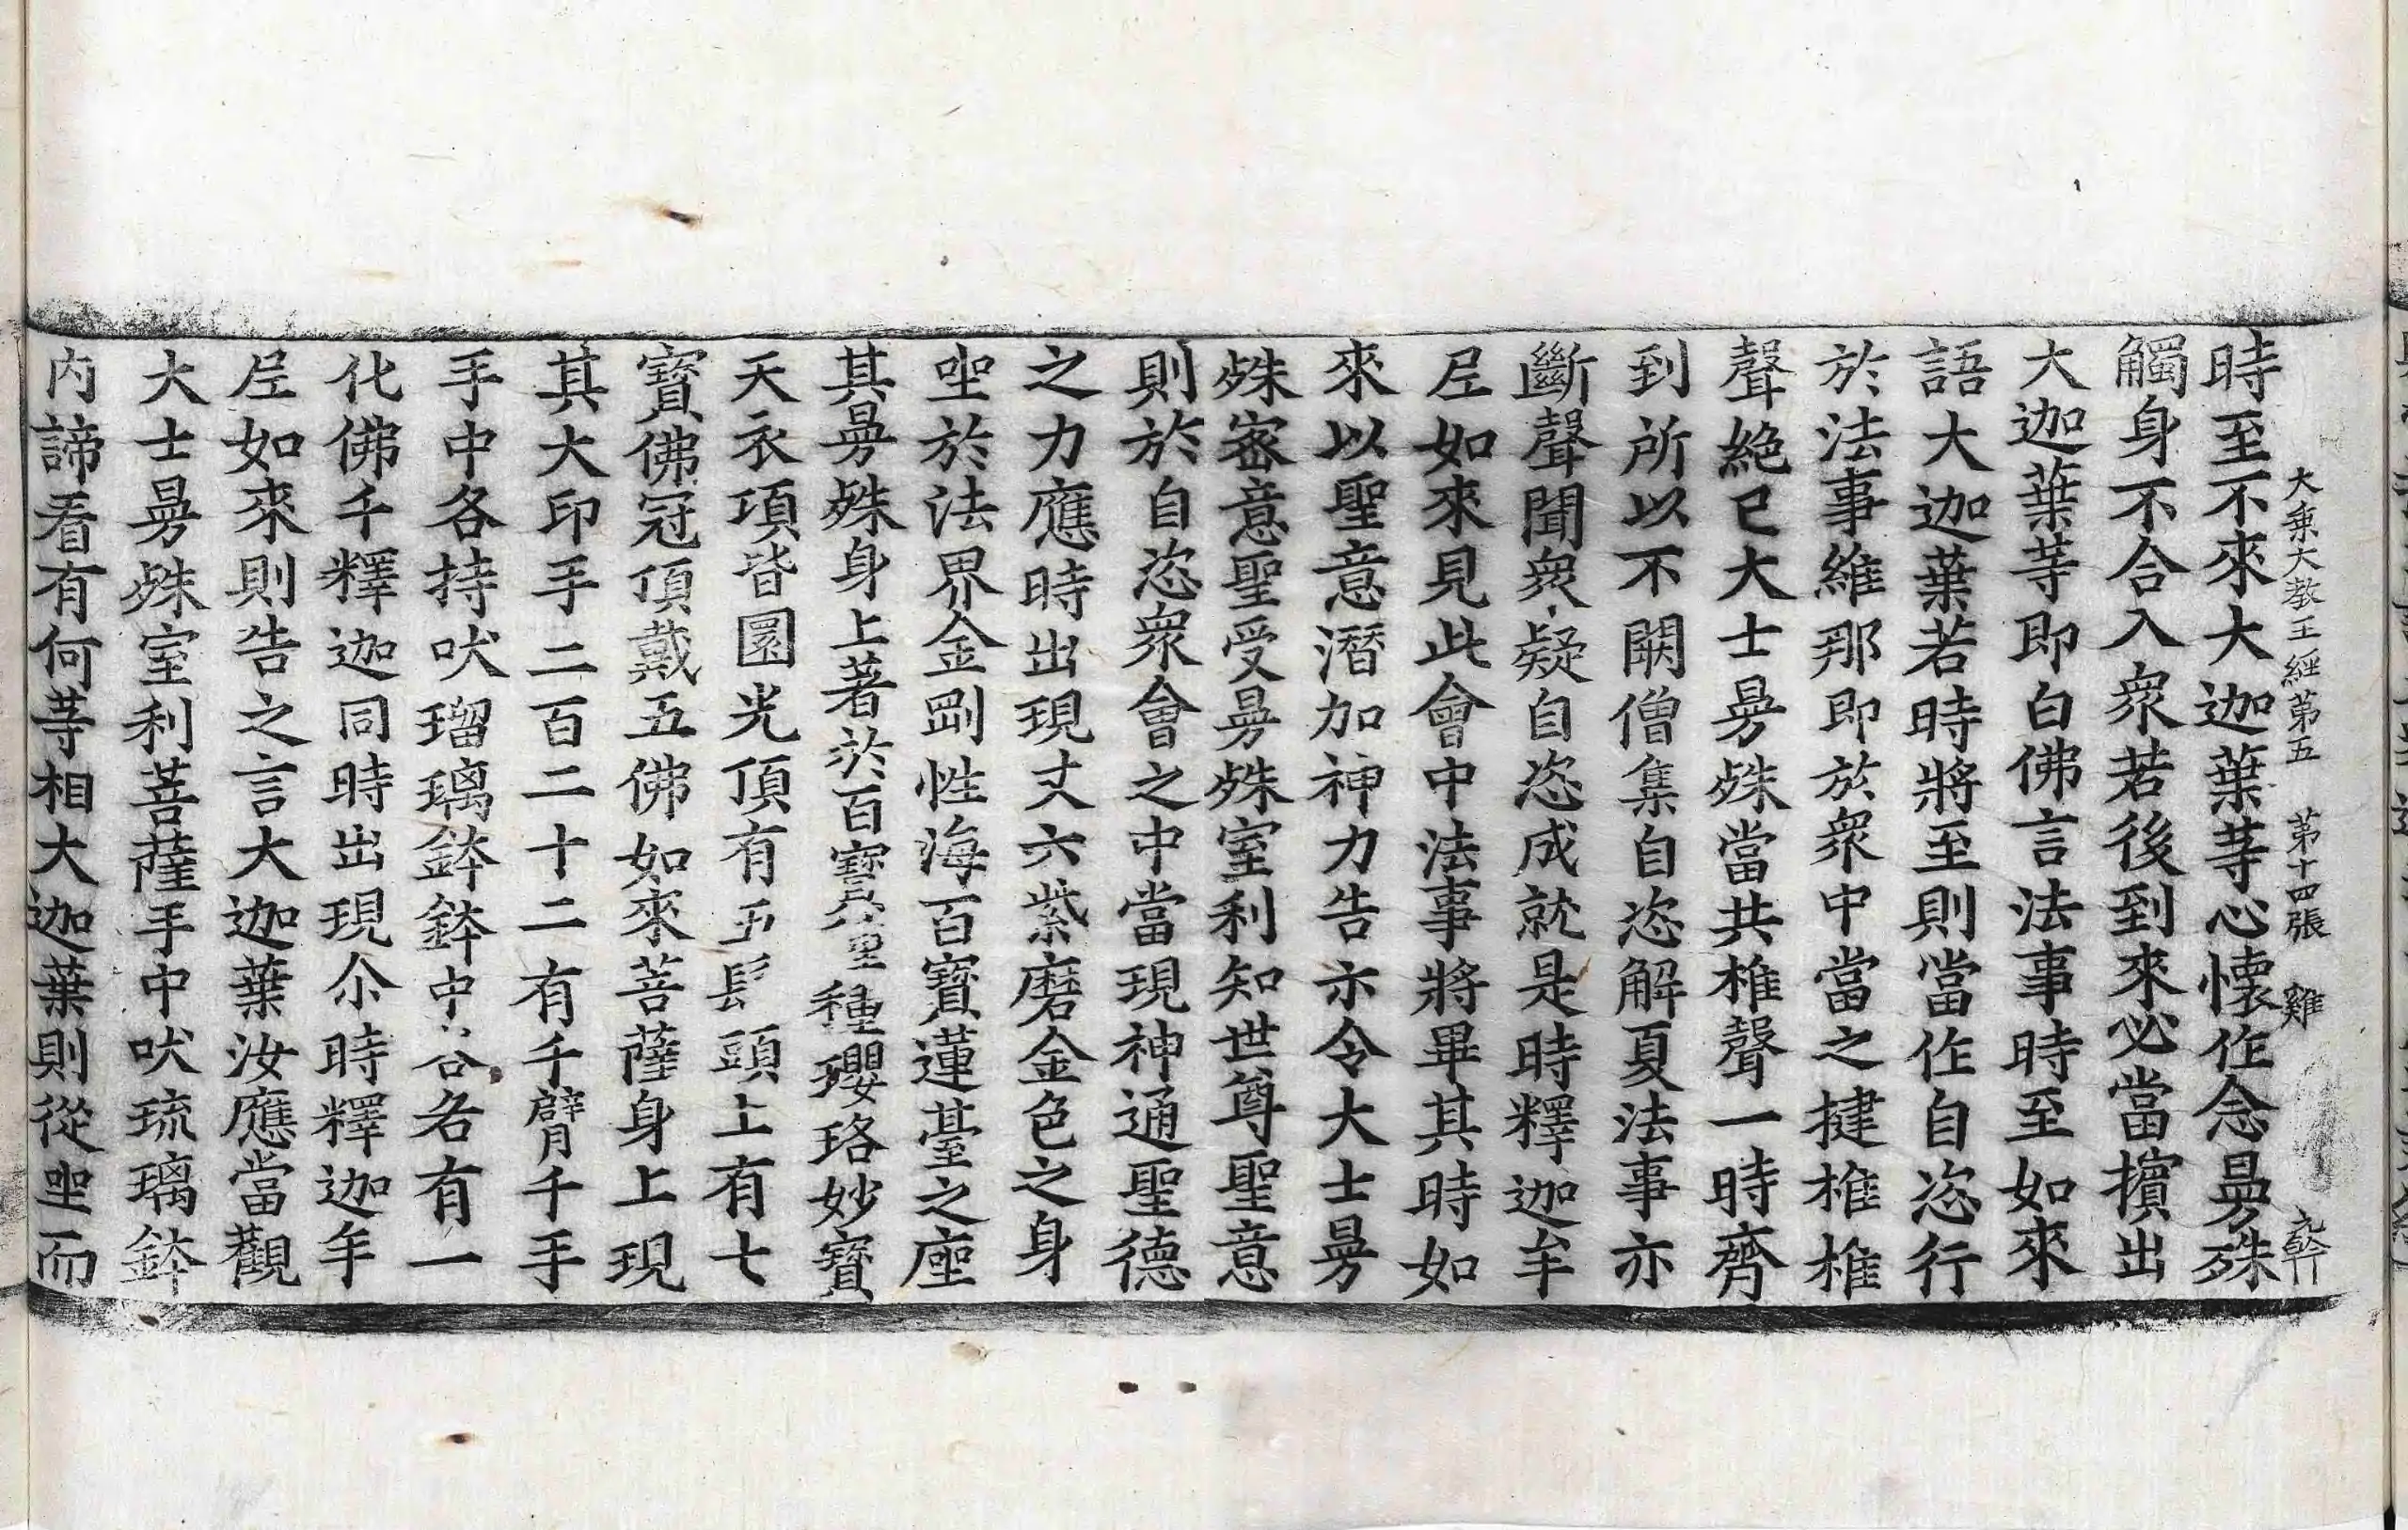 大乗大教王經第五　第十四張　雞
時至不來大迦葉䓁心懷作念曼殊
觸身不合入衆若後到來必當擯出
大迦葉䓁即白佛言法事時至如來
語大迦葉若時將至則當作自恣行
於法事維那即於衆中當之揵椎椎
聲絶已大士曼殊當共椎聲一時齊
到所以不闕僧集自恣解夏法事亦
斷聲聞衆疑自恣成就是時釋迦牟
尼如來見此會中法事將畢其時如
來以聖意潛加神力告示令大士曼
殊密意聖受曼殊室利知世尊聖意
則於自恣衆會之中當現神通聖德
之力應時出現丈六紫磨金色之身
坐於法界金剛性海百寶蓮臺之座
其曼殊身上著於百寶種種瓔珞妙寶
天衣項皆圓光頂有五髻頭上有七
寶佛冠頂戴五佛如來菩薩身上現
其大印手二百二十二有千臂千手
手中各持吠瑠璃鉢鉢中各各有一
化佛千釋迦同時出現尒時釋迦牟
尼如來則告之言大迦葉汝應當觀
大士曼殊室利菩薩手中吠琉璃鉢
内諦看有何䓁相大迦葉則從坐而